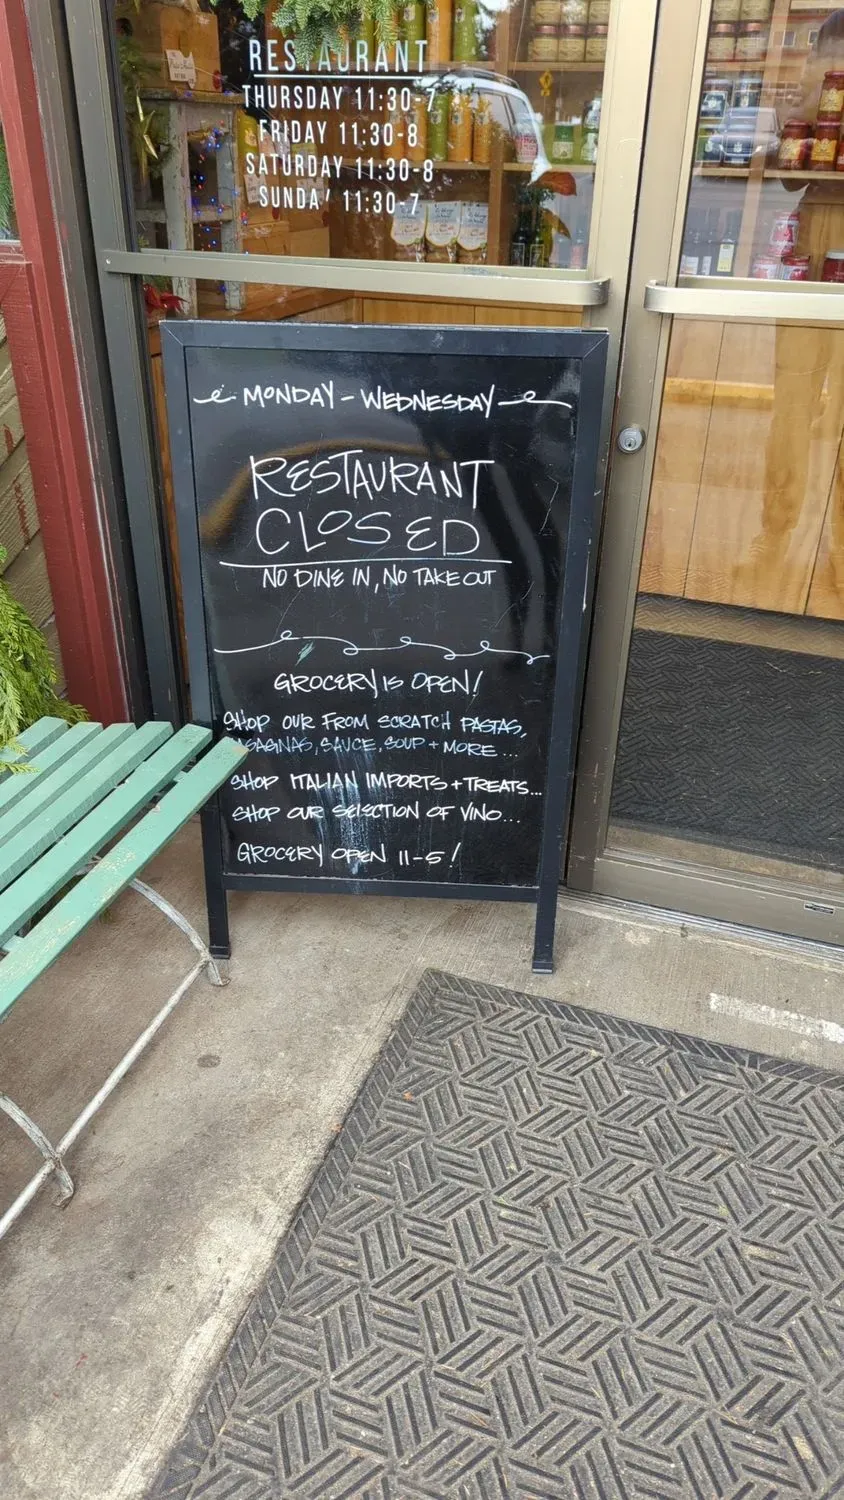 RESTAURANT
THURSDAY 11:30-7
FRIDAY 11:30-8
SATURDAY 11:30-8
SUNDA' 11:30-7
MONDAY - WEDNESDAY
RESTAURANT
CLOSED
NO DINE IN, NO TAKE OUT
GROCERY IS OPEN!
SHOP OUR FROM SCRATCH PASTAS,
ASAGNAS, SAUCE, SOUP + MORE ...
SHOP ITALIAN IMPORTS + TREATS...
SHOP OUR SELECTION OF VINO...
GROCERY OPEN 11-5!